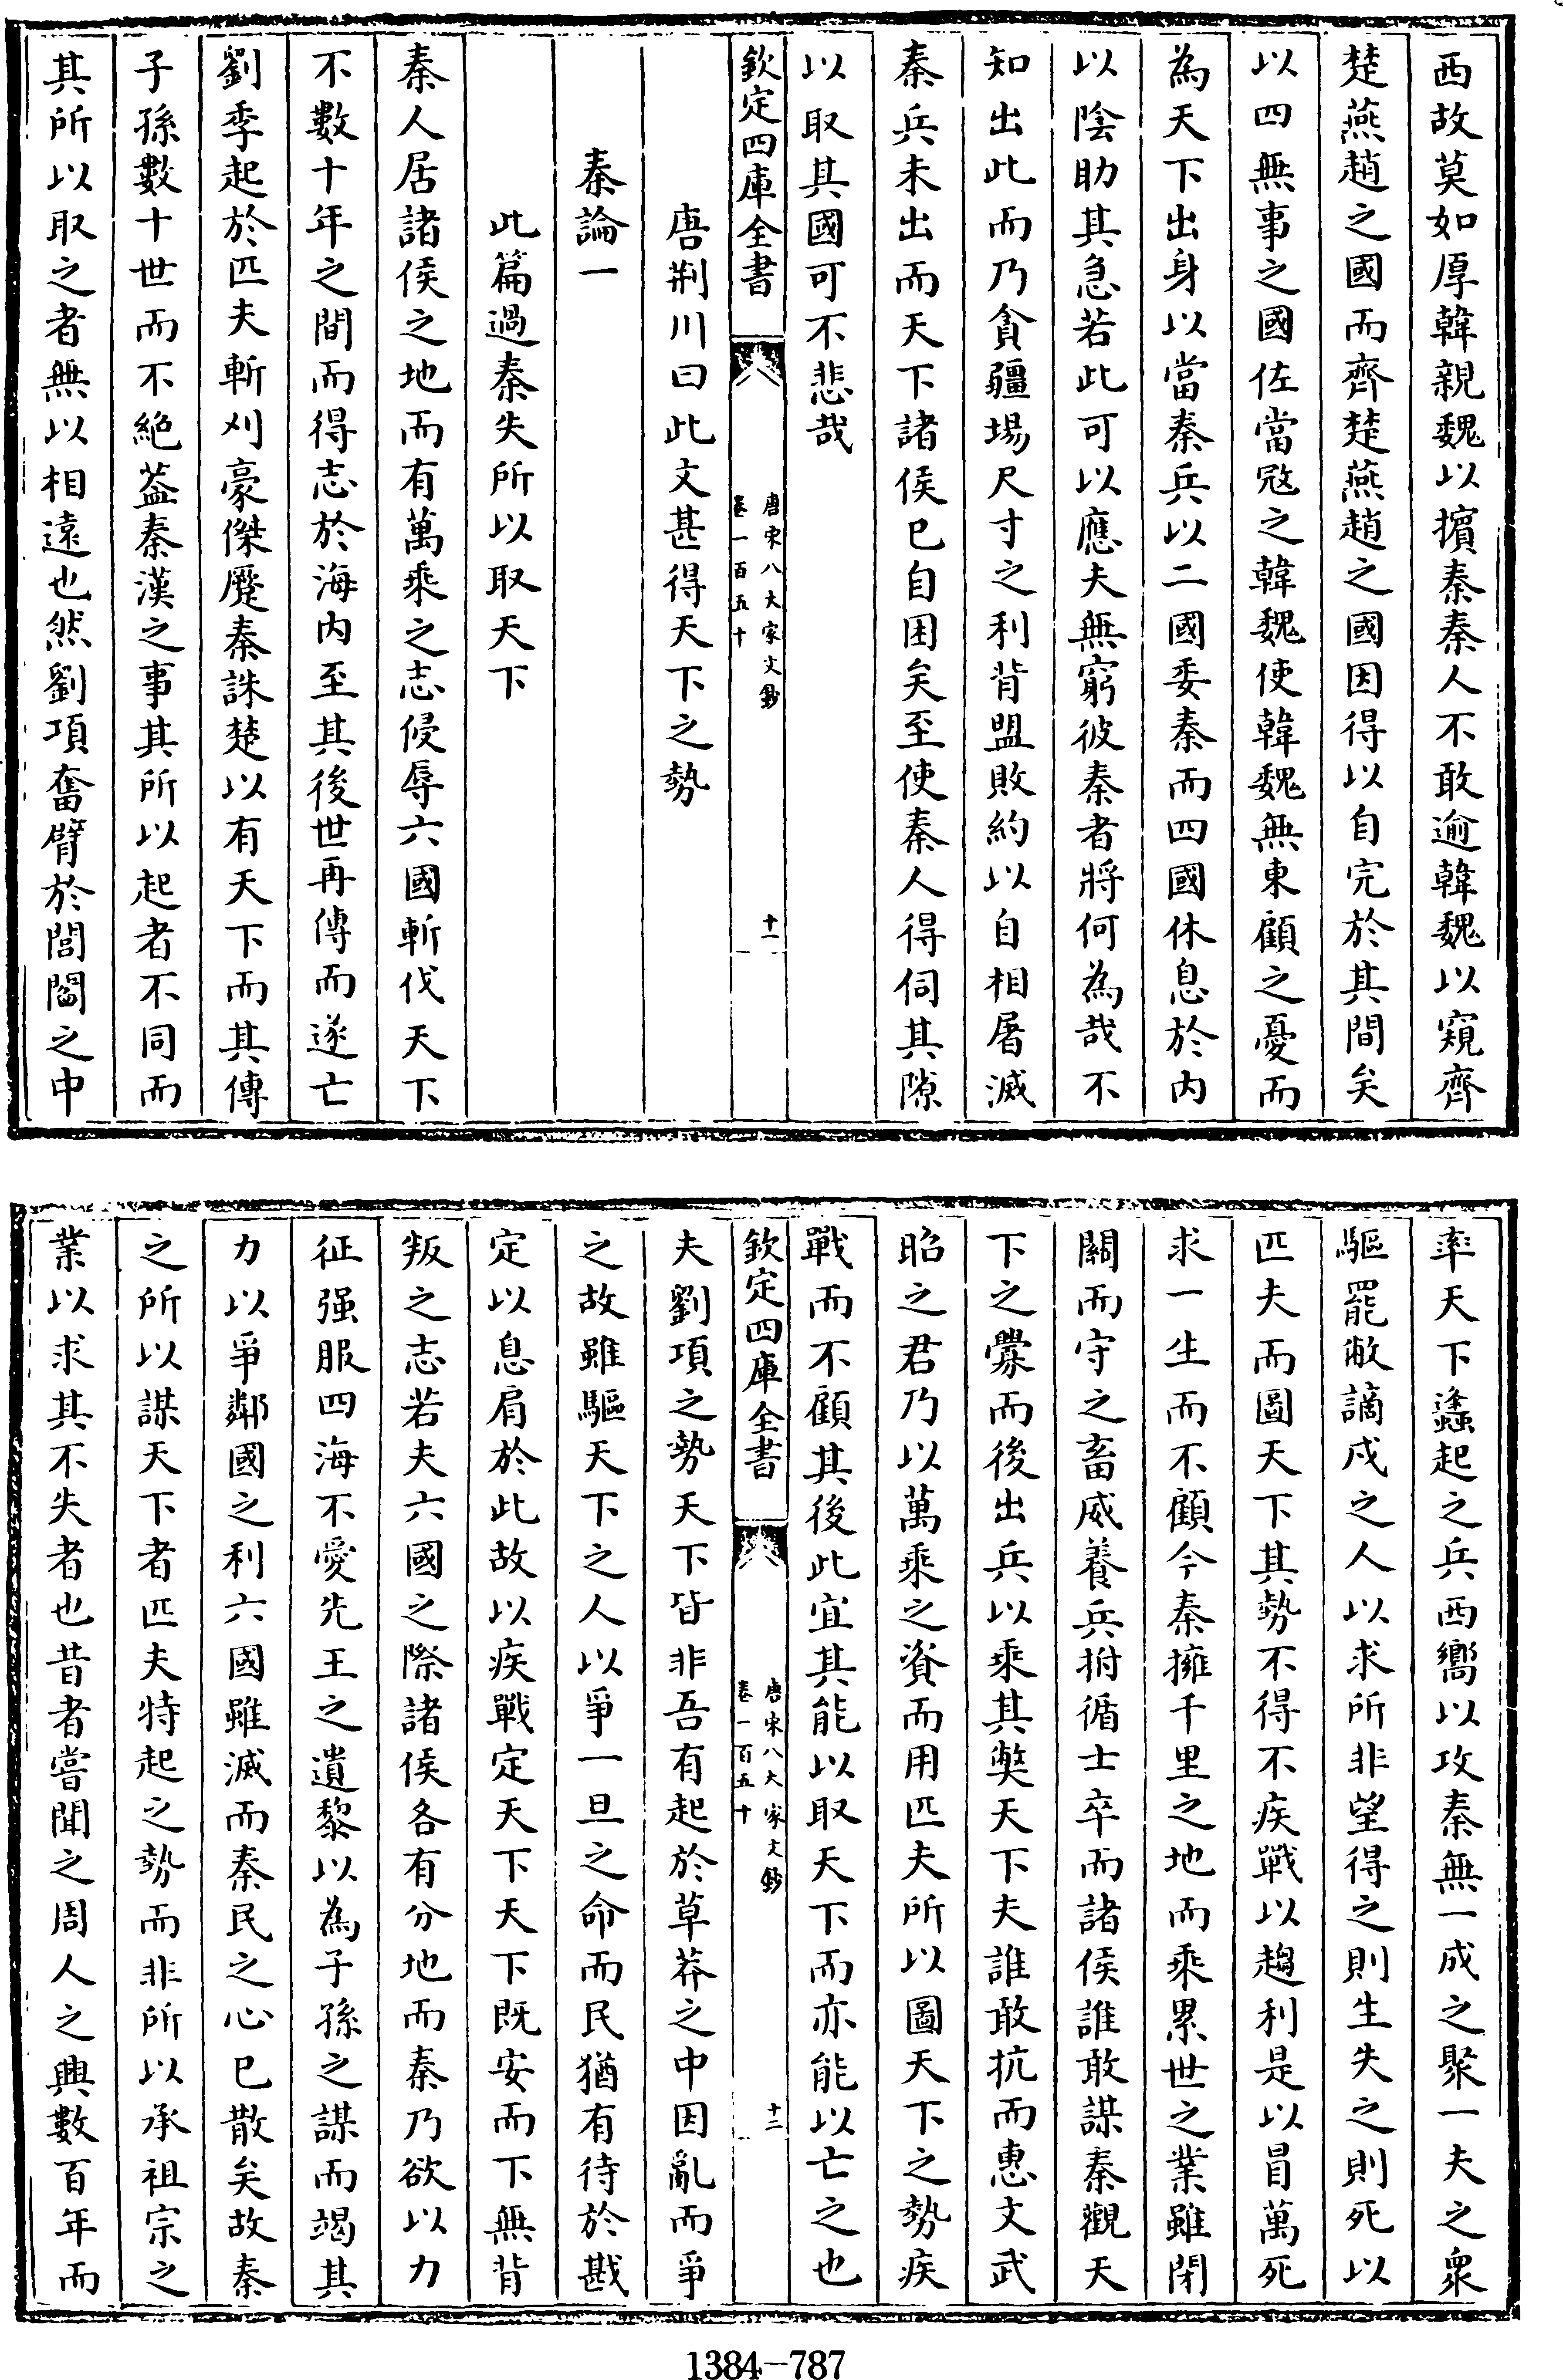 西故莫如厚韓親魏以擯秦秦人不敢逾韓魏以窺齊
楚燕趙之國而齊楚燕趙之國因得以自完於其間矣
以四無事之國佐當宼之韓魏使韓魏無東顧之憂而
為天下出身以當秦兵以二國委秦而四國休息於内
以陰助其急若此可以應夫無窮彼秦者將何為哉不
知出此而乃貪疆場尺寸之利背盟敗約以自相屠滅
秦兵未出而天下諸侯已自困矣至使秦人得伺其隙
以取其國可不悲哉
欽定四庫全書
唐宋八大家文鈔
卷一百五十
十一
唐荆川曰此文甚得天下之勢
秦論一
此篇過秦失所以取天下
秦人居諸侯之地而有萬乘之志侵辱六國斬伐天下
不數十年之間而得志於海内至其後世再傳而遂亡
劉季起於匹夫斬刈豪傑蹷秦誅楚以有天下而其傳
子孫數十世而不絶葢秦漢之事其所以起者不同而
其所以取之者無以相遠也然劉項奮臂於閭閻之中
率天下蠭起之兵西嚮以攻秦無一成之聚一夫之衆
驅罷敝謫戍之人以求所非望得之則生失之則死以
匹夫而圖天下其勢不得不疾戰以趨利是以冒萬死
求一生而不顧今秦擁千里之地而乘累世之業雖閉
關而守之畜威養兵拊循士卒而諸侯誰敢謀秦觀天
下之釁而後出兵以乘其弊天下夫誰敢抗而惠文武
昭之君乃以萬乘之資而用匹夫所以圖天下之勢疾
戰而不顧其後此宜其能以取天下而亦能以亡之也
欽定四庫全書
唐宋八大家文鈔
卷一百五十
十二
夫劉項之勢天下皆非吾有起於草莽之中因亂而爭
之故雖驅天下之人以爭一旦之命而民猶有待於戡
定以息肩於此故以疾戰定天下天下既安而下無背
叛之志若夫六國之際諸侯各有分地而秦乃欲以力
征强服四海不愛先王之遺黎以為子孫之謀而竭其
力以爭鄰國之利六國雖滅而秦民之心已散矣故秦
之所以謀天下者匹夫特起之勢而非所以承祖宗之
業以求其不失者也昔者嘗聞之周人之興數百年而
1384-787